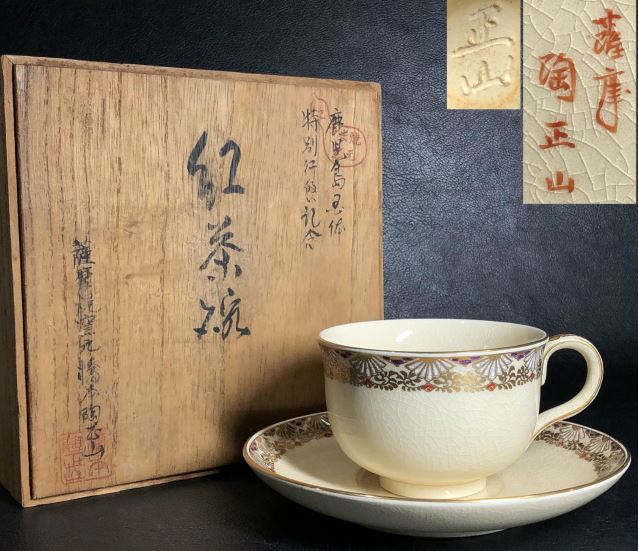 鹿児島国体
特別仁級記念
紅茶碗
薩摩焼窯元橋本陶正山
正山
薩摩
陶正山